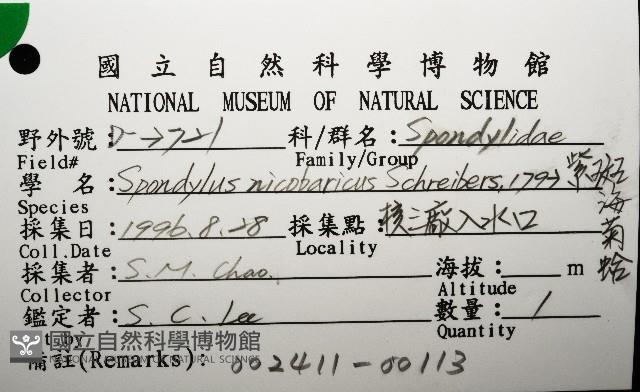 國立自然科學博物館
NATIONAL MUSEUM OF NATURAL SCIENCE
野外號: D-2721 科/群名: Spondylidae
Field# Family/Group
學 名: Spondylus nicobaricus Schreibers, 1793 紫斑海菊蛤
Species
採集日: 1996.8.28 採集點: 核三廠入水口
Coll.Date Locality
採集者: S.M. Chao. 海拔: m
Collector Altitude
鑑定者: S. C. Lee 數量: 1
Quantity
國立自然科學博物館
NATIONAL MUSEUM OF NATURAL SCIENCE
備註(Remarks): 002411-00113